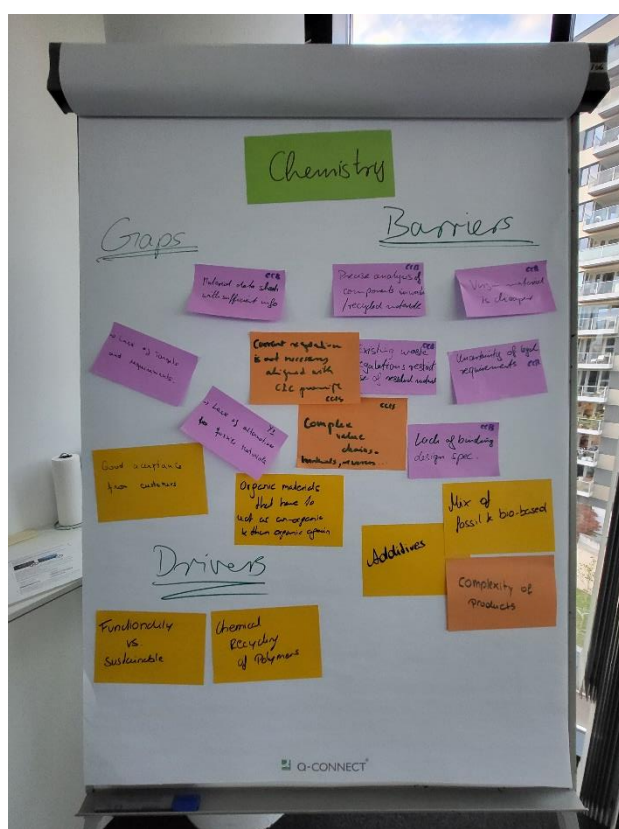 Chemistry
Gaps
Barriers
Material data sheets
with sufficient info
CCB
Precise analysis of
components in waste
/recycled materials
CCB
material
is cheaper
Lack of
and requirements
Current regulation
is not necessary
aligned with
CCB
Existing waste
regulations restrict
use of
Uncertainty of legal
requirements
CCB
Lack of
to
materials
Complex
value
chains
CCB
Lack of binding
design spec.
CCB
Good acceptance
from customers
Organic materials
that have to
act as an-organic
& then organic again
Additives
Mix of
fossil & bio-based
Complexity of
Products
Drivers
Functionality
vs.
sustainable
Chemical
Recycling
of Polymers
Q-CONNECT